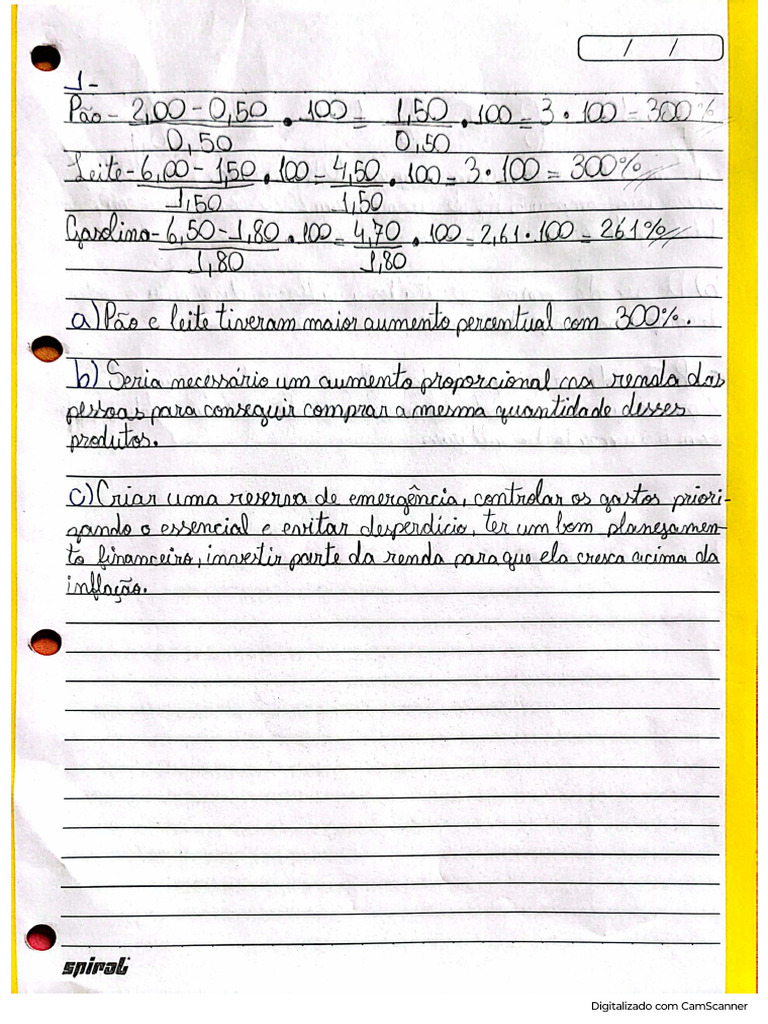 / /
1-
Pão - 2,00 - 0,50 . 100 = 1,50 . 100 = 3 . 100 = 300%
0,50 0,50
Leite - 6,00 - 1,50 . 100 = 4,50 . 100 = 3 . 100 = 300%
1,50 1,50
Gasolina - 6,50 - 1,80 . 100 = 4,70 . 100 = 2,61 . 100 = 261%
1,80 1,80
a) Pão e leite tiveram maior aumento percentual com 300%.
b) Seria necessário um aumento proporcional na renda das
pessoas para conseguir comprar a mesma quantidade desses
produtos.
c) Criar uma reserva de emergência, controlar os gastos priori-
zando o essencial e evitar desperdício, ter um bom planejamen-
to financeiro, investir parte da renda para que ela cresça acima da
inflação.
spiral
Digitalizado com CamScanner